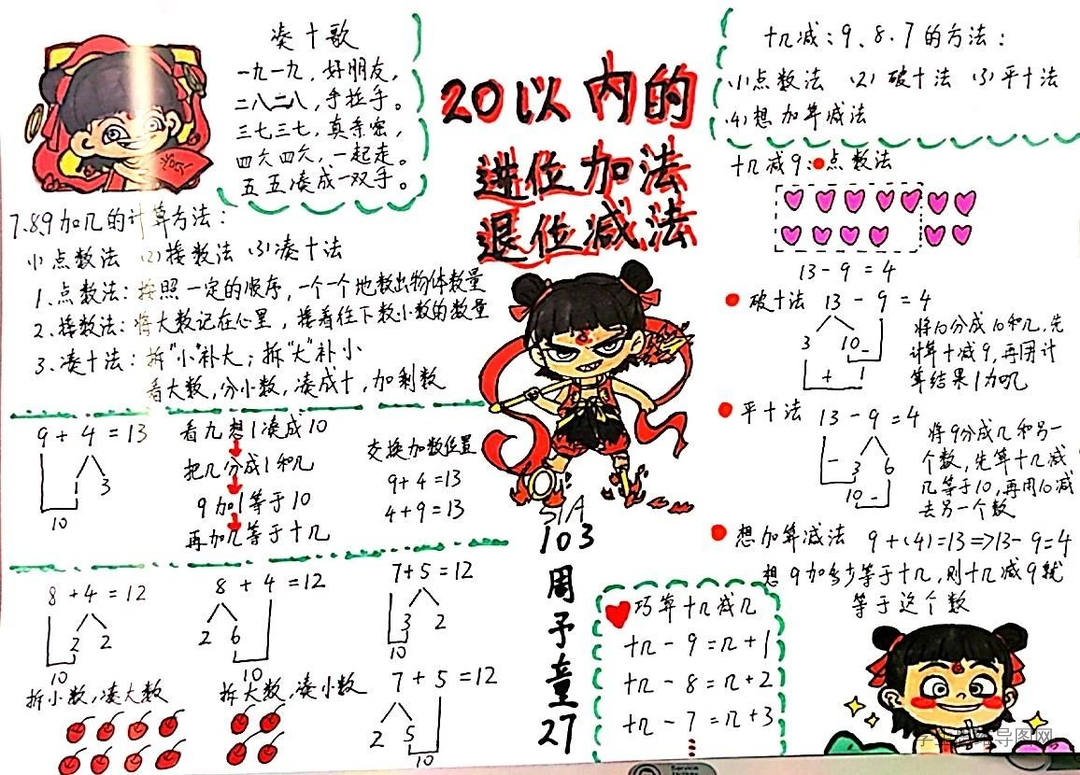 凑十歌
一九一九，好朋友，
二八二八，手拉手。
三七三七，真亲密，
四六四六，一起走。
五五凑成一双手。
7.8.9加几的计算方法：
(1)点数法 (2)接数法 (3)凑十法
1.点数法：按照一定的顺序，一个一个地数出物体数量
2.接数法：将大数记在心里，接着往下数小数的数量
3.凑十法：拆"小"补大；拆"大"补小
看大数，分小数，凑成十，加剩数
9+4=13
1 3
10
看九想1凑成10
把几分成1和几
9加1等于10
再加几等于十几
交换加数位置
9+4=13
4+9=13
8+4=12
2 2
10
拆小数，凑大数
8+4=12
2 6
10
拆大数，凑小数
7+5=12
3 2
10
7+5=12
2 5
10
20以内的
进位加法
退位减法
103
周予童
27
十几减：9、8、7的方法：
(1)点数法 (2)破十法 (3)平十法
(4)想加算减法
十几减9：点数法
13-9=4
破十法 13-9=4
3 10-
+ 1
将10分成10和几，先
计算十减9，再用计
算结果1加几
平十法 13-9=4
- 3 6
10-
将9分成几和另一
个数，先算十几减
几等于10，再用10减
去另一个数
想加算减法 9+(4)=13=>13-9=4
想9加多少等于十几，则十几减9就
等于这个数
巧算十几减几
十几-9=几+1
十几-8=几+2
十几-7=几+3